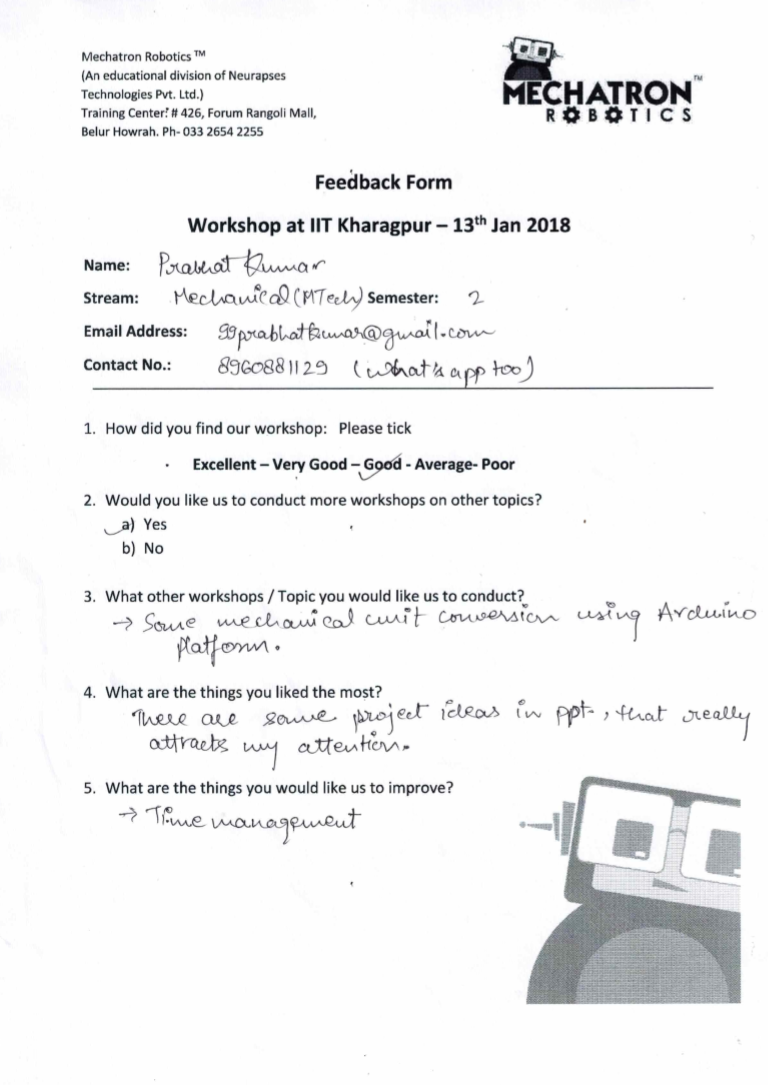 Mechatron Robotics ™
(An educational division of Neurapses
Technologies Pvt. Ltd.)
Training Center: # 426, Forum Rangoli Mall,
Belur Howrah. Ph- 033 2654 2255
MECHATRON™
ROBOTICS
Feedback Form
Workshop at IIT Kharagpur – 13th Jan 2018
Name: Prabhat Kumar
Stream: Mechanical (MTech) Semester: 2
Email Address: 99prabhatkumar@gmail.com
Contact No.: 8960881129 (what's app too)
1. How did you find our workshop: Please tick
Excellent – Very Good – Good - Average- Poor
2. Would you like us to conduct more workshops on other topics?
a) Yes
b) No
3. What other workshops / Topic you would like us to conduct?
→ Some mechanical unit conversion using Arduino
platform.
4. What are the things you liked the most?
There are some project ideas in ppt, that really
attracts my attention.
5. What are the things you would like us to improve?
→ Time management